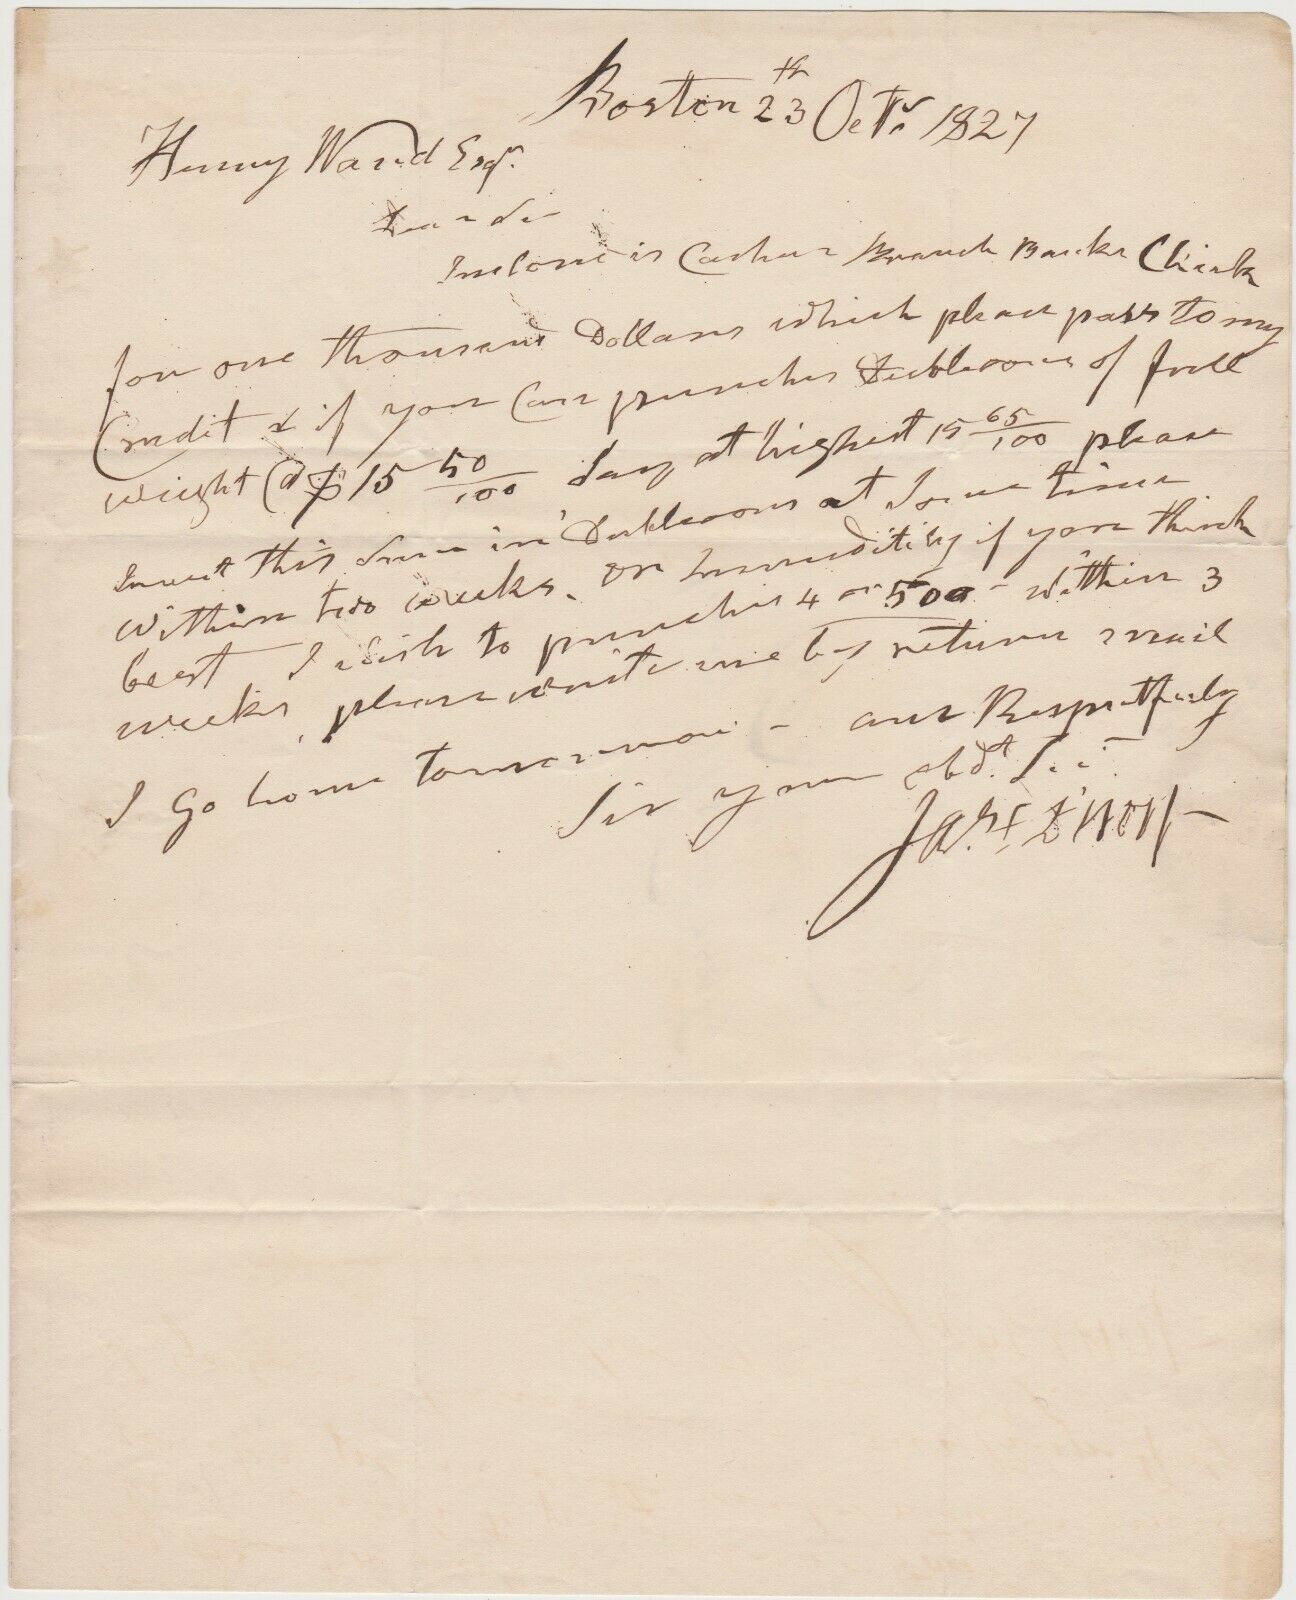 Boston 23th Octr 1827
Henry Ward Esqr.
Dear Sir
Inclosed is Cashier Branch Banks Check
for one thousand Dollars which please pass to my
Credit & if you Can purches Dubleoons of full
weight @ $15 50/100 Say at highest 15 65/100 please
Invest this Sum in Dubleoons at Some time
within two weeks. or Immeditily if you think
best I wish to purches 4 or 500 - within 3
weeks, please write me by return mail
I Go home tomorrow - and Respectfuly
Sir your obdt. Sir
Jas.